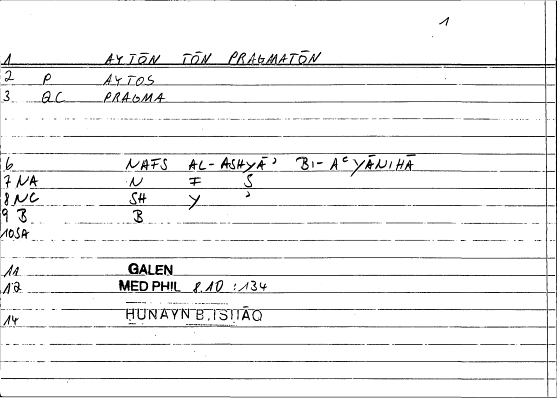 1
1 AYTŌN TŌN PRAGMATŌN
2 P AYTOS
3 QC PRAGMA
6 NAFS AL-ASHYĀʾ BI-AᶜYĀNIHĀ
7 NA N F S
8 NC SH Y ʾ
9 B B
10 SA
11 GALEN
12 MED PHIL 8.10 :134
14 ḤUNAYN B. ISḤĀQ